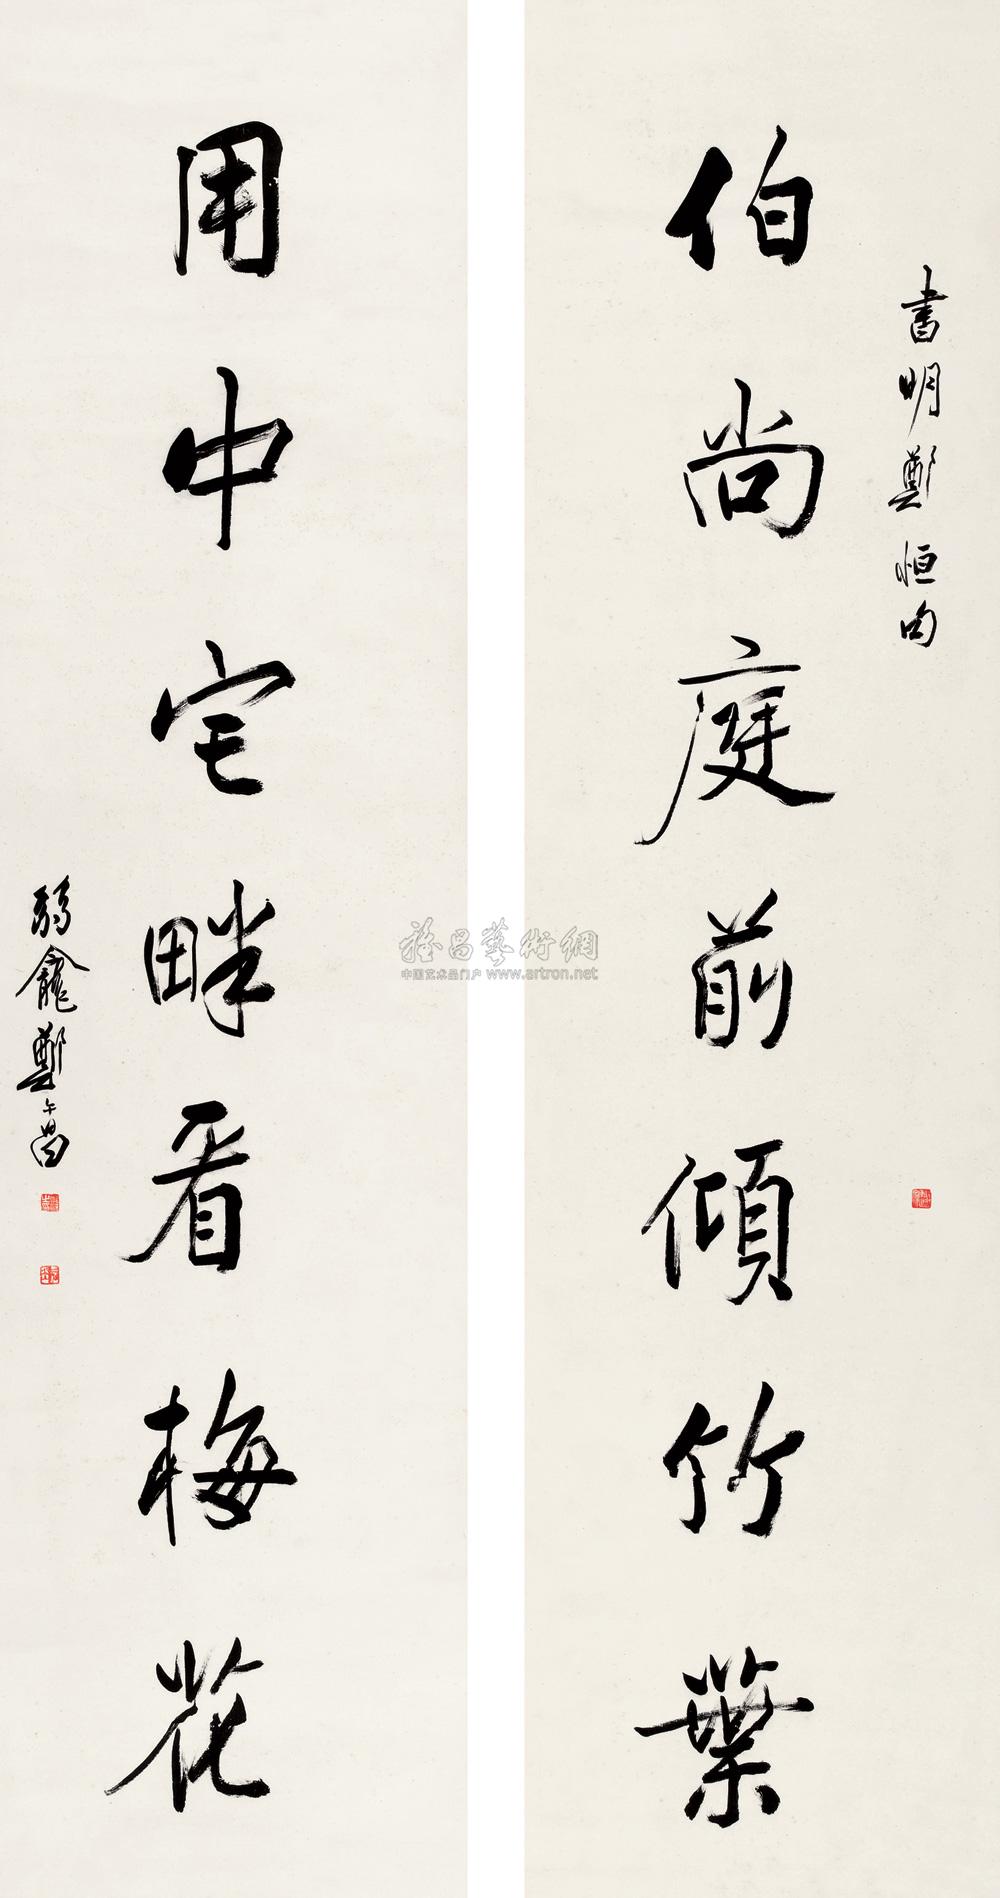 書明鄭恒句
伯尚庭前傾竹葉
用中宅畔看梅花
弱龕鄭午昌
雅昌藝術網
中国艺术品门户 www.artron.net